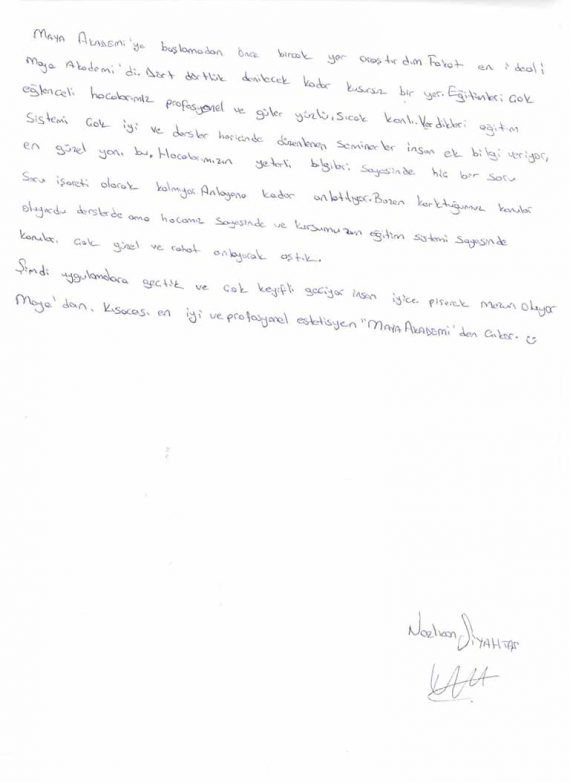 MAYA AKADEMİ'ye başlamadan önce birçok yer araştırdım Fakat en ideali
Maya Akademi'di. Dört dörtlük denilecek kadar kusursuz bir yer. Eğitimleri çok
eğlenceli hocalarımız profesyonel ve güler yüzlü, sıcak kanlı. Verdikleri eğitim
Sistemi çok iyi ve dersler haricinde düzenlenen Seminerler insan ek bilgi veriyor,
en güzel yanı bu. Hocalarımızın yeterli bilgileri sayesinde hiç bir soru
Soru işareti olarak kalmıyor. Anlayana kadar anlatılıyor. Bazen korktuğumuz konular
oluyordu derslerde ama hocamız sayesinde ve kursumuzun eğitim sistemi sayesinde
konuları çok güzel ve rahat anlayarak aştık.
Şimdi uygulamalara geçtik ve çok keyifli geçiyor insan iyice pişerek mezun oluyor
Maya'dan. Kısacası en iyi ve profosyonel estetisyen "MAYA AKADEMİ'den Çıkar. ☺
Nazlıcan SİYAHTAŞ